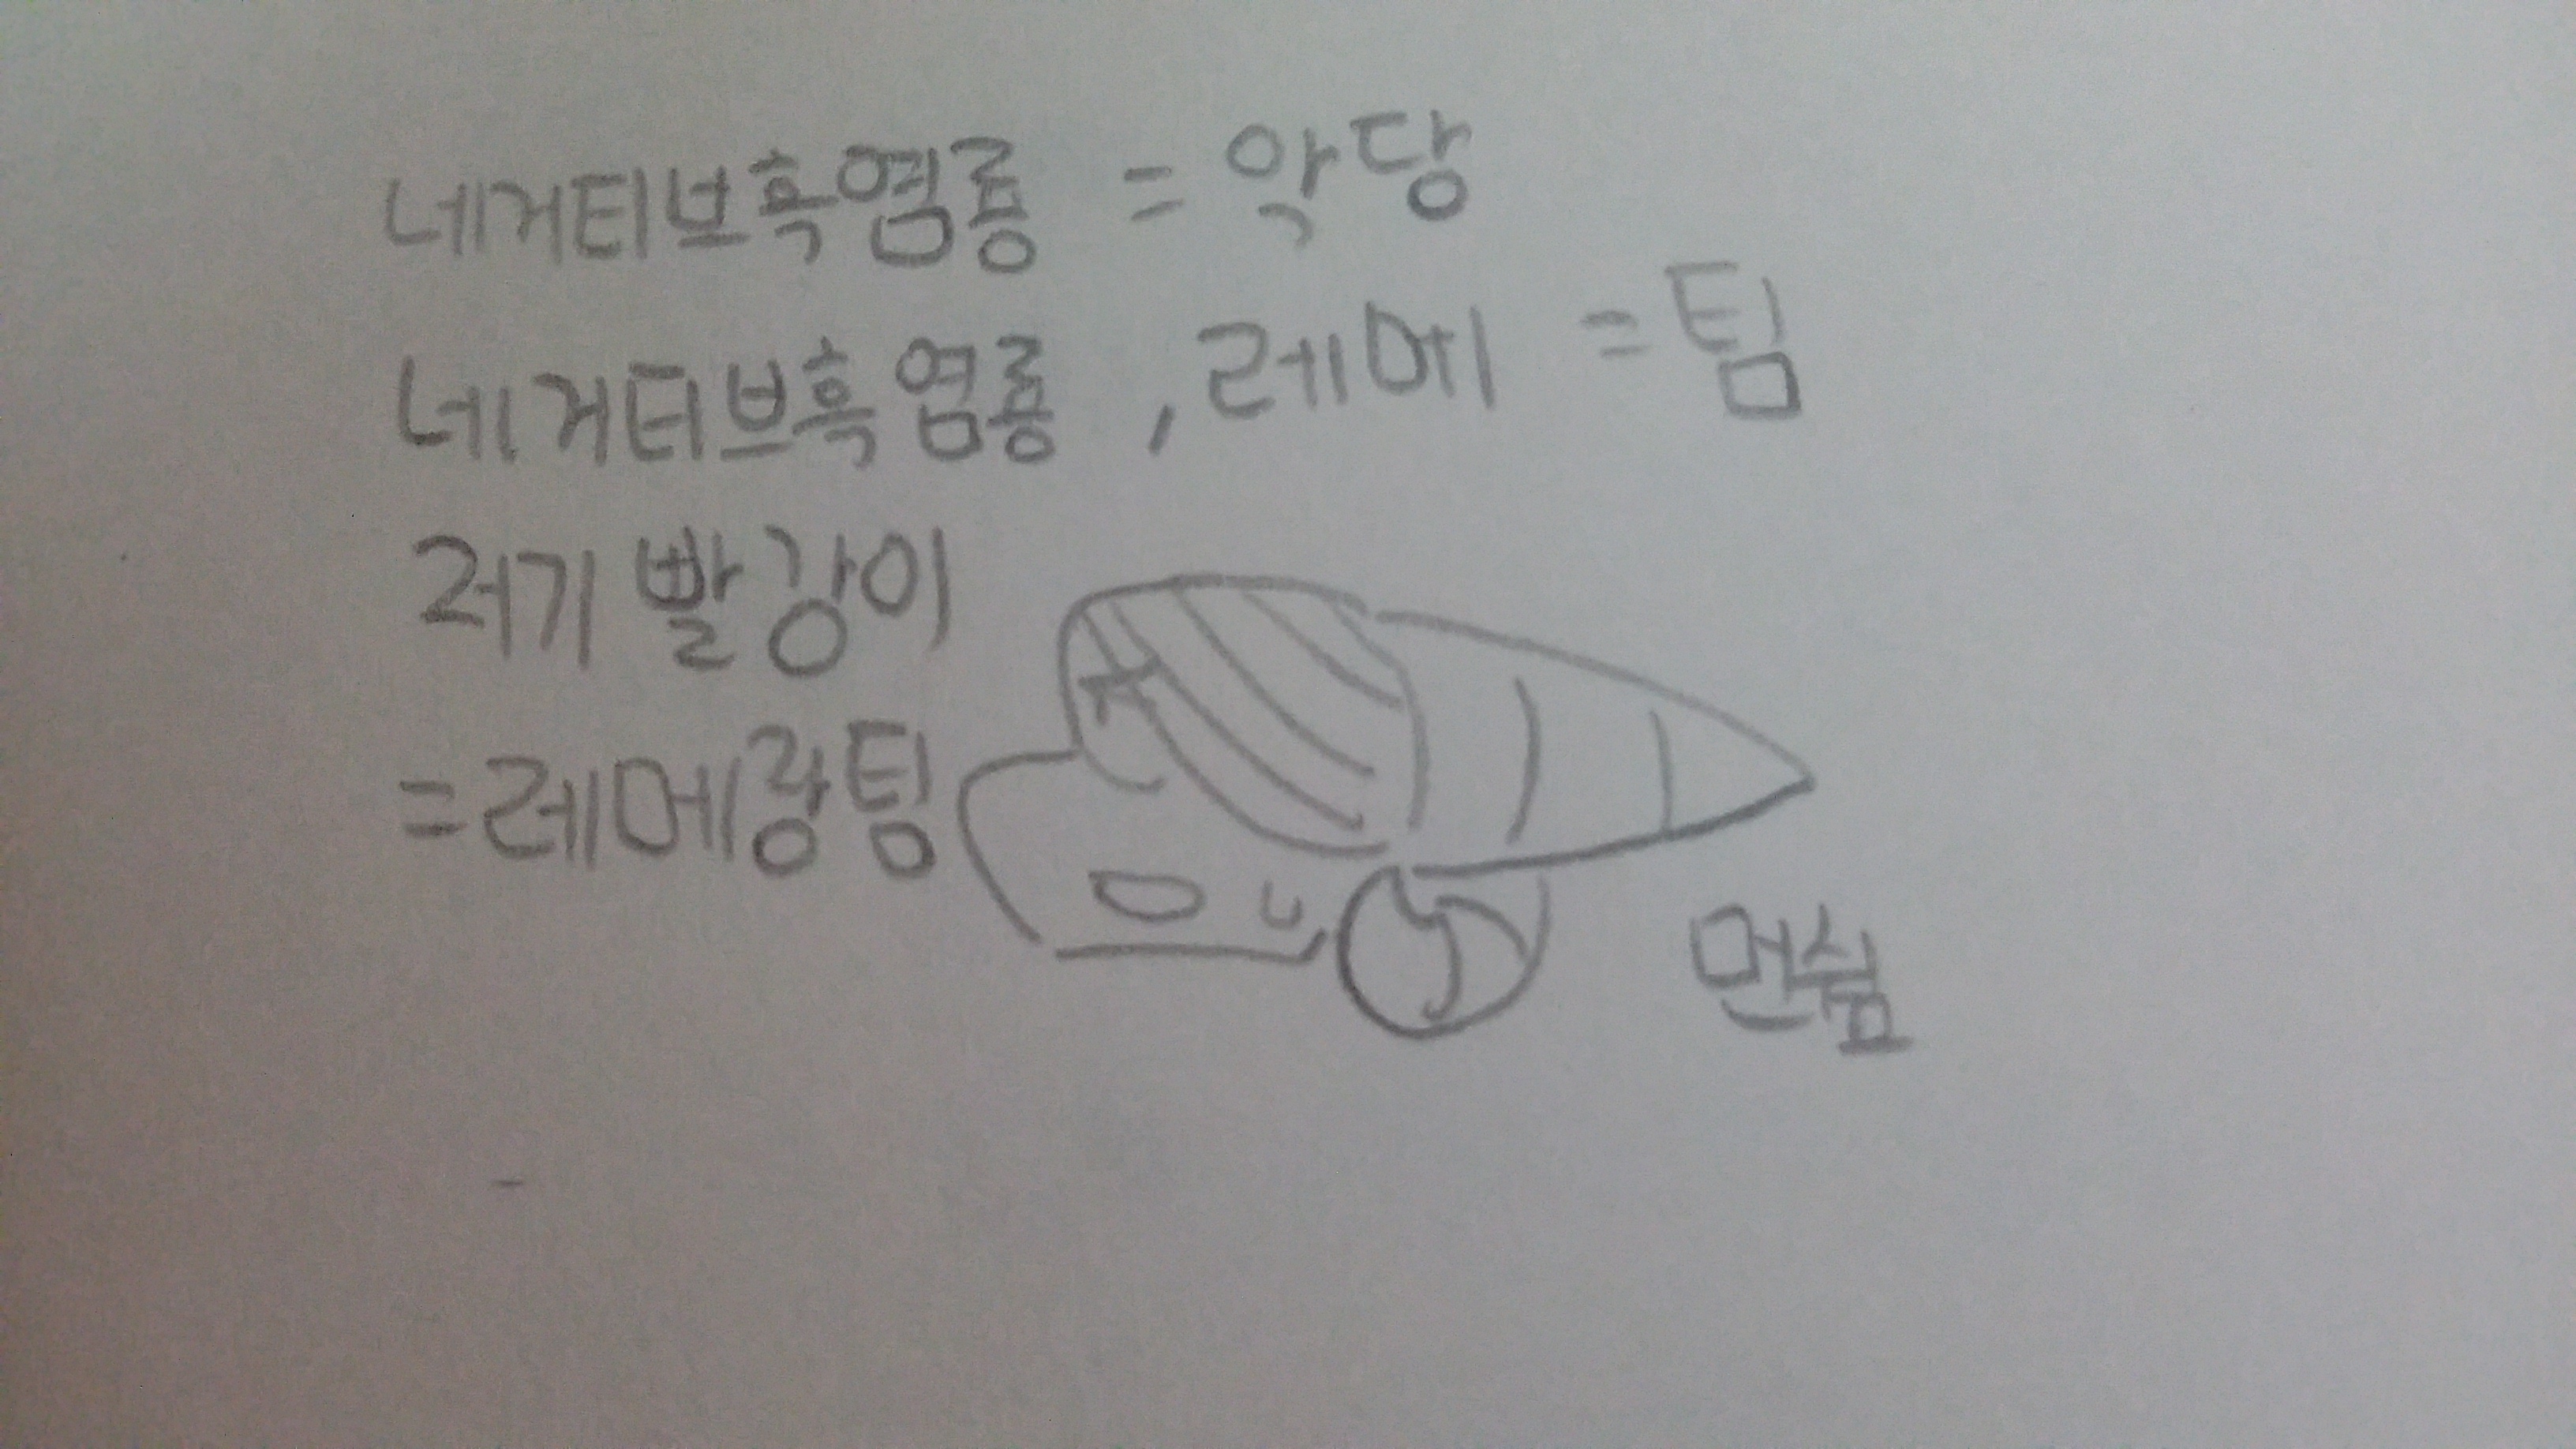 네거티브흑염룡 = 악당
네거티브흑염룡 , 레메 = 팀
저기 빨강이
=레메랑팀
먼쉼